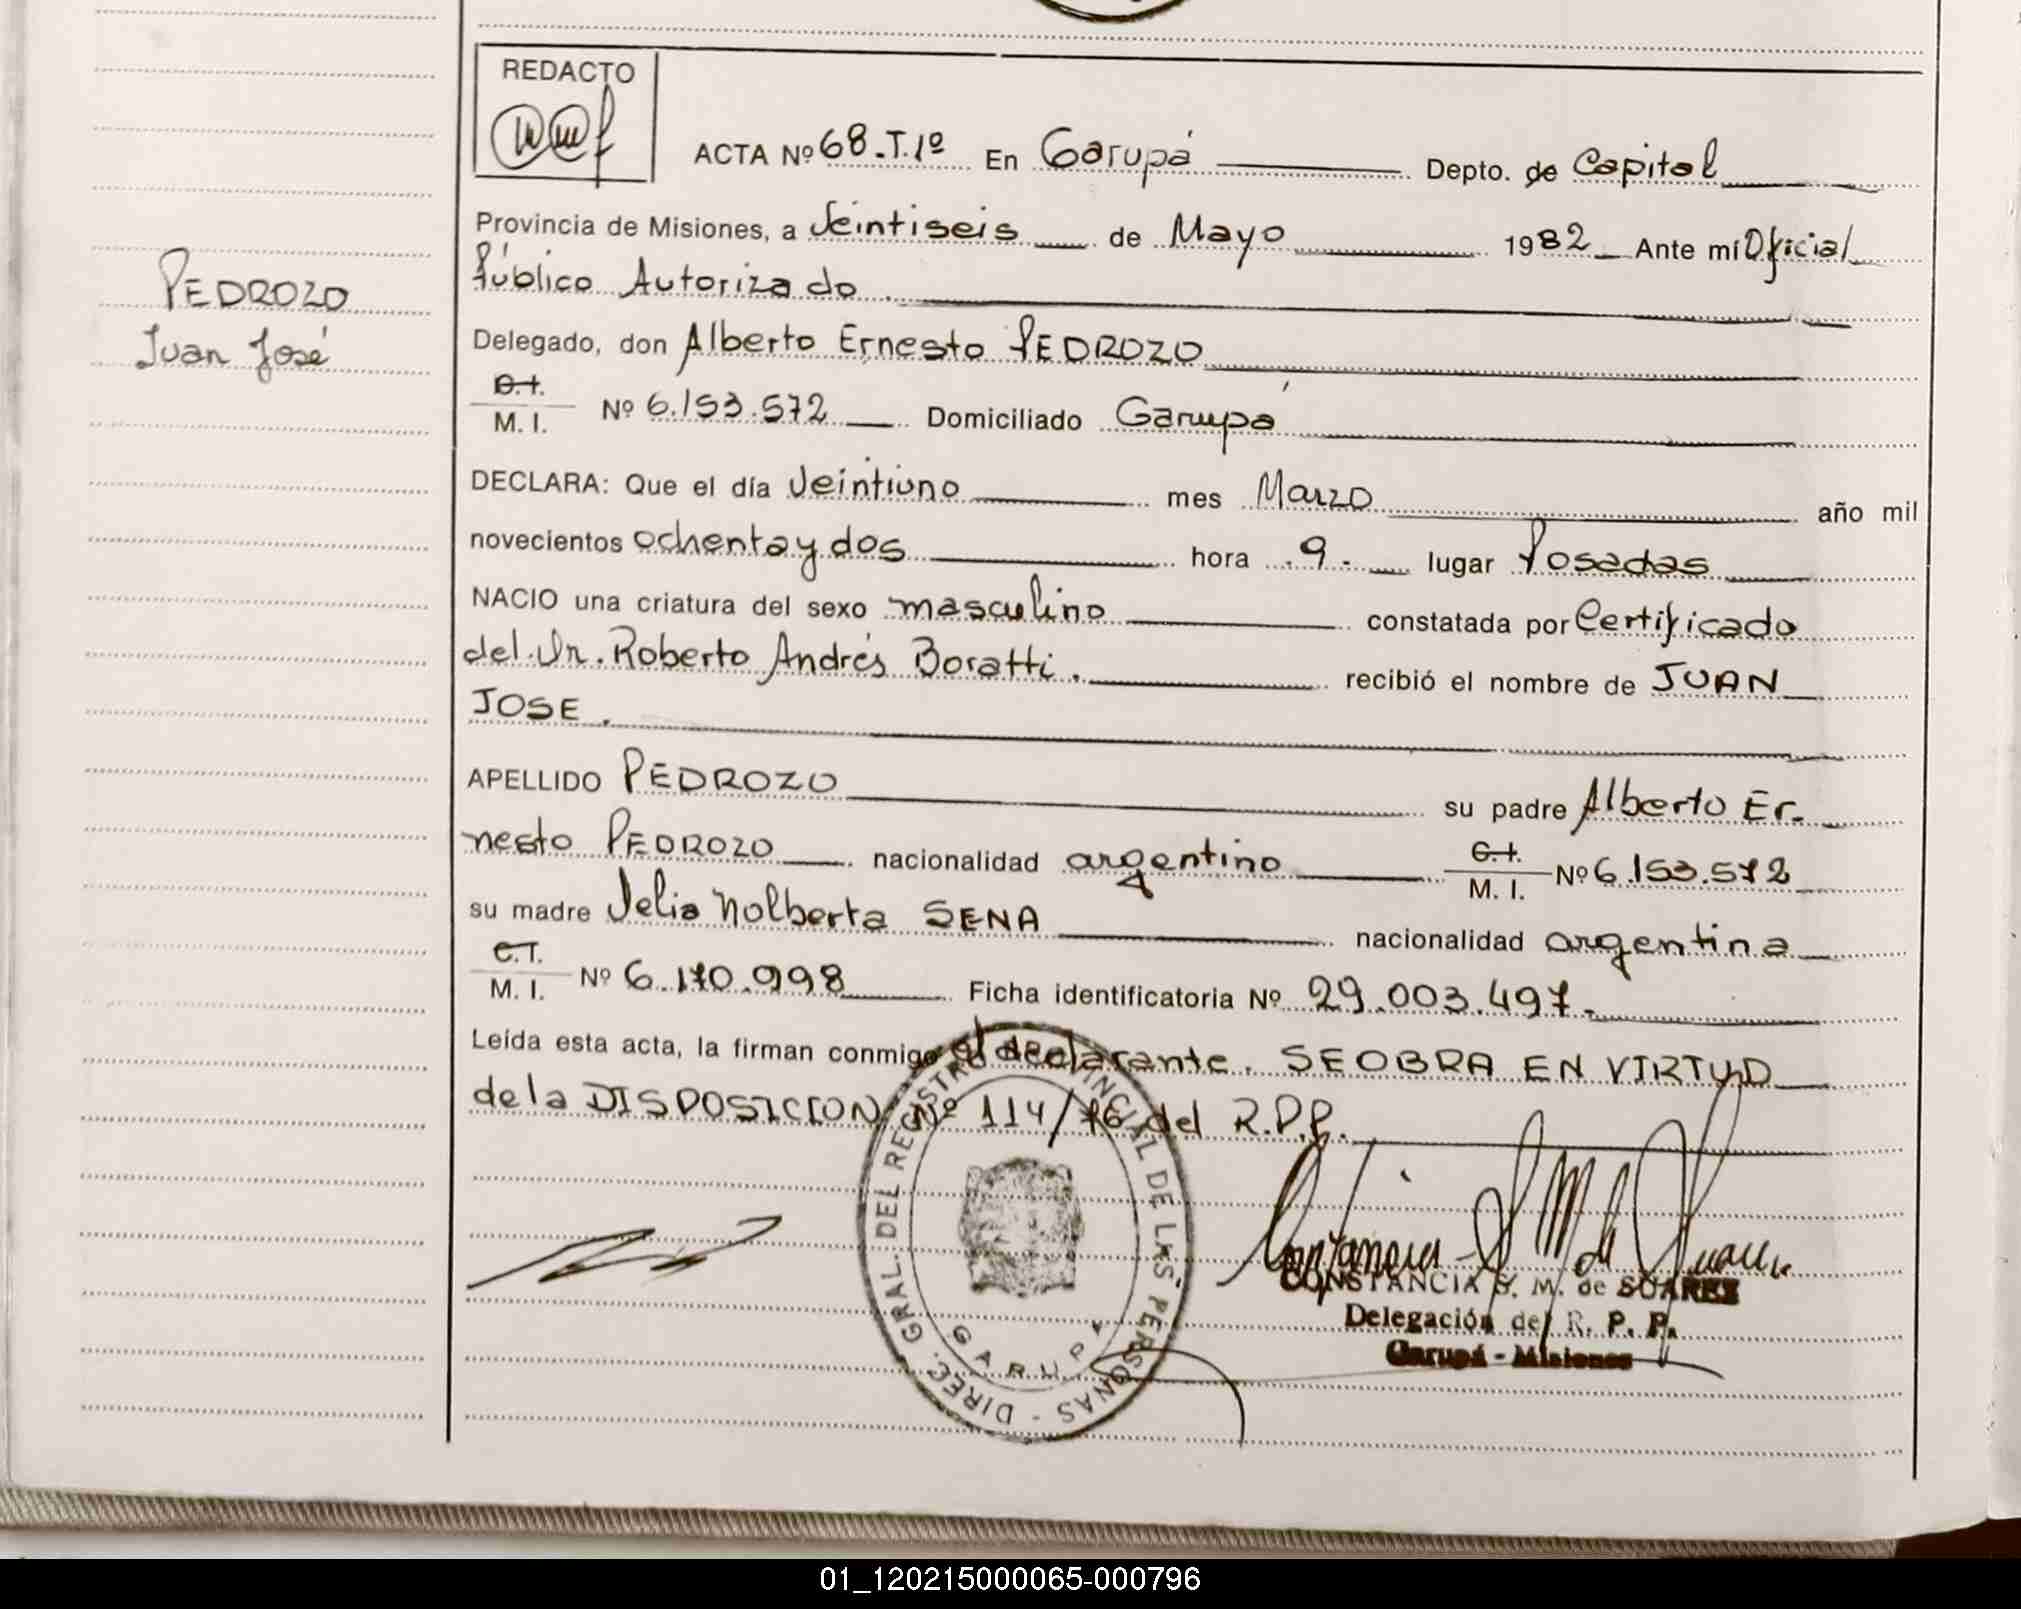 REDACTO
ACTA Nº 68.T.1º En Garupá Depto. de Capital
Provincia de Misiones, a Veintiseis de Mayo 1982 Ante mí Oficial
Público Autorizado.
Delegado, don Alberto Ernesto PEDROZO
C.I.
M. I. Nº 6.153.572 Domiciliado Garupá
DECLARA: Que el día Veintiuno mes Marzo año mil
novecientos ochenta y dos hora .9. lugar Posadas
NACIO una criatura del sexo masculino constatada por Certificado
del Dr. Roberto Andrés Boratti. recibió el nombre de JUAN
JOSE.
APELLIDO PEDROZO su padre Alberto Er-
nesto PEDROZO nacionalidad argentino C.I. M. I. Nº 6.153.572
su madre Velia Nolberta SENA nacionalidad argentina
C.I.
M. I. Nº 6.170.998 Ficha identificatoria Nº 29.003.497.
Leída esta acta, la firman conmigo el declarante. SEOBRA EN VIRTUD
de la DISPOSICION Nº 114/76 del R.P.P.
PEDROZO
Juan José
DIREC. GRAL. DEL REGISTRO PROVINCIAL DE LAS PERSONAS -
GARUPA
CONSTANCIA S. M. de SUAREZ
Delegación del R. P. P.
Garupá - Misiones
01_120215000065-000796